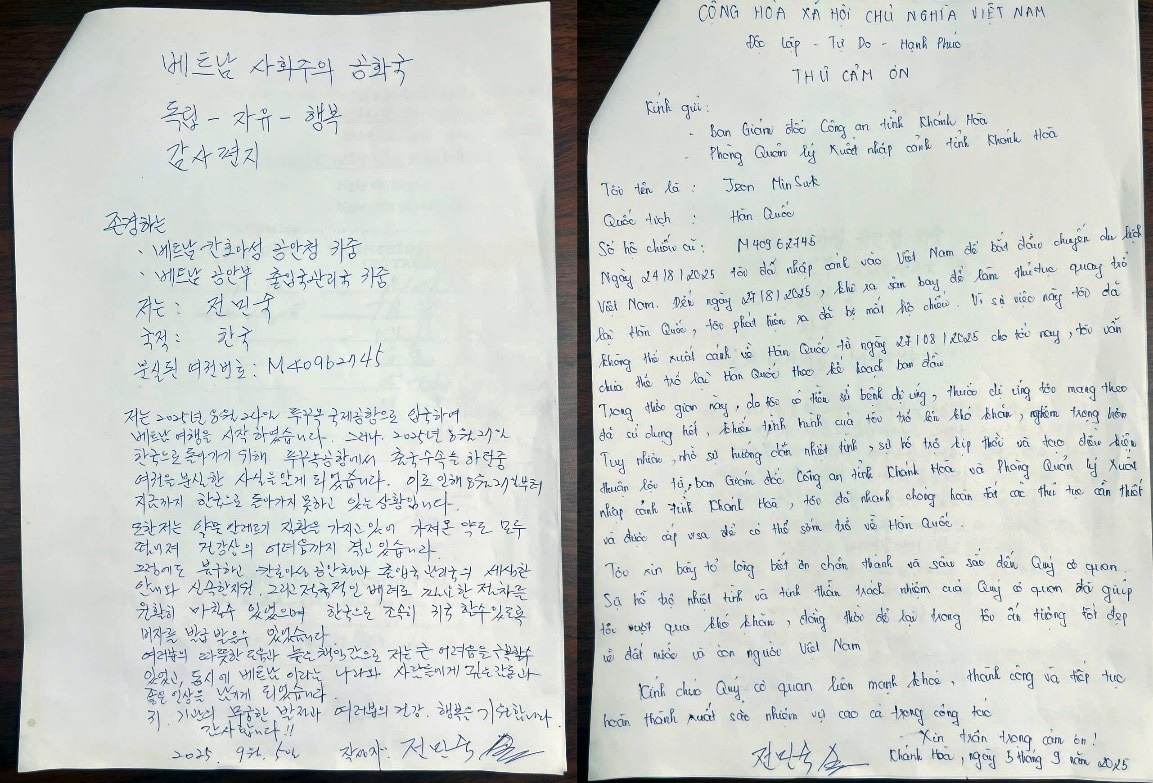 베트남 사회주의 공화국
독립 - 자유 - 행복
감사편지
존경하는
· 베트남 칸호아성 공안청 귀중
· 베트남 공안부 출입국관리국 귀중
저는 : 전민숙
국적 : 한국
분실된 여권번호 : M40962745
저는 2025년 8월 24일 푸꾸꾸 국제공항으로 입국하여
베트남 여행을 시작 하였습니다. 그러나 2025년 8월 27일
한국으로 돌아가기 위해 푸꾸옥공항에서 출국수속을 하던중
여권을 분실한 사실을 알게 되었습니다. 이로 인해 8월 27일부터
지금까지 한국으로 돌아가지 못하고 있는 상황입니다.
또한 저는 약물 알레르기 질환을 가지고 있어 가져온 약도 모두
떨어져 건강상의 어려움까지 겪고 있습니다.
그럼에도 불구하고 칸호아성 공안청과 출입국관리국의 세심한
안내와 신속한 지원 그리고 적극적인 배려로 필요한 절차를
원활히 마칠수 있었으며 한국으로 조속히 귀국 할수 있도록
비자를 발급 받을수 있었습니다.
여러분의 따뜻한 도움과 높은 책임감으로 저는 큰 어려움을 극복할수
있었고, 동시에 베트남 이라는 나라와 사람들에게 깊은 감동과
좋은 인상을 남기게 되었습니다.
귀 기관의 무궁한 발전 여러분의 건강. 행복을 기원합니다.
감사합니다 !!
2025 9월. 5일 작성자: 전민숙
CỘNG HÒA XÃ HỘI CHỦ NGHĨA VIỆT NAM
Độc lập - Tự Do - Hạnh Phúc
THƯ CẢM ƠN
Kính gửi :
- Ban Giám đốc Công an tỉnh Khánh Hoà
- Phòng Quản lý Xuất nhập cảnh tỉnh Khánh Hoà
Tôi tên là : Jeon MinSuk
Quốc tịch : Hàn Quốc
Số hộ chiếu cũ : M40962745
Ngày 24/8/2025 tôi đã nhập cảnh vào Việt Nam để bắt đầu chuyến du lịch
Việt Nam. Đến ngày 27/8/2025, khi ra sân bay để làm thủ tục quay trở
lại Hàn Quốc, tôi phát hiện ra đã bị mất hộ chiếu. Vì sự việc này tôi đã
không thể xuất cảnh về Hàn Quốc từ ngày 27/08/2025 cho tới nay, tôi vẫn
chưa thể trở lại Hàn Quốc theo kế hoạch ban đầu
Trong thời gian này, do tôi có tiền sử bệnh dị ứng, thuốc dị ứng tôi mang theo
đã sử dụng hết, khiến tình hình của tôi trở lên khó khăn, nghiêm trọng hơn
Tuy nhiên, nhờ sự hướng dẫn nhiệt tình, sự hỗ trợ kịp thời và tạo điều kiện
thuận lợi từ ban Giám đốc Công an tỉnh Khánh Hoà và Phòng Quản lý Xuất
nhập cảnh tỉnh Khánh Hoà, tôi đã nhanh chóng hoàn tất các thủ tục cần thiết
và được cấp visa để có thể sớm trở về Hàn Quốc.
Tôi xin bày tỏ lòng biết ơn chân thành và sâu sắc đến Quý cơ quan.
Sự hỗ trợ nhiệt tình và tinh thần trách nhiệm của Quý cơ quan đã giúp
tôi vượt qua khó khăn, đồng thời để lại trong tôi ấn tượng tốt đẹp
về đất nước và con người Việt Nam
Kính chúc Quý cơ quan luôn mạnh khoẻ, thành công và tiếp tục
hoàn thành xuất sắc nhiệm vụ cao cả trong công tác
Xin trân trọng cảm ơn !
전민숙 Khánh Hoà, ngày 5 tháng 9 năm 2025